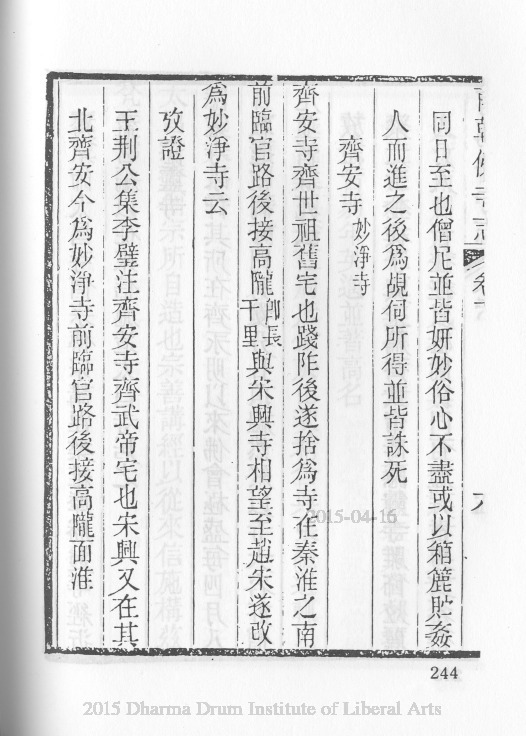 南朝佛寺志 卷下 八
同日至也僧尼並皆妍妙俗心不盡或以箱簏貯姦
人而進之後爲覘伺所得並皆誅死
齊安寺 妙淨寺
齊安寺齊世祖舊宅也踐阼後遂捨爲寺在秦淮之南
前臨官路後接高隴即長干里與宋興寺相望至趙宋遂改
爲妙淨寺云
攷證
王荆公集李壁注齊安寺齊武帝宅也宋興又在其
北齊安今爲妙淨寺前臨官路後接高隴面淮
244
2015-04-16
2015 Dharma Drum Institute of Liberal Arts